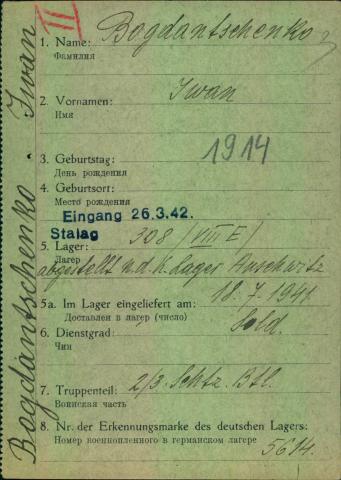 II
Bogdantschenko Iwan
1. Name: Bogdantschenko
Фамилия
2. Vornamen: Iwan
Имя
1914
3. Geburtstag:
День рождения
4. Geburtsort:
Место рождения
Eingang 26.3.42.
Stalag
5. Lager: 308 (VIII E)
Лагерь
abgestellt n.d.K. Lager Auschwitz
5a. Im Lager eingeliefert am: 18.7.1941
Доставлен в лагерь (число)
6. Dienstgrad: Sold.
Чин
7. Truppenteil: 2/3. Schtz. Btl.
Воинская часть
8. Nr. der Erkennungsmarke des deutschen Lagers:
Номер военнопленного в германском лагере
5614.